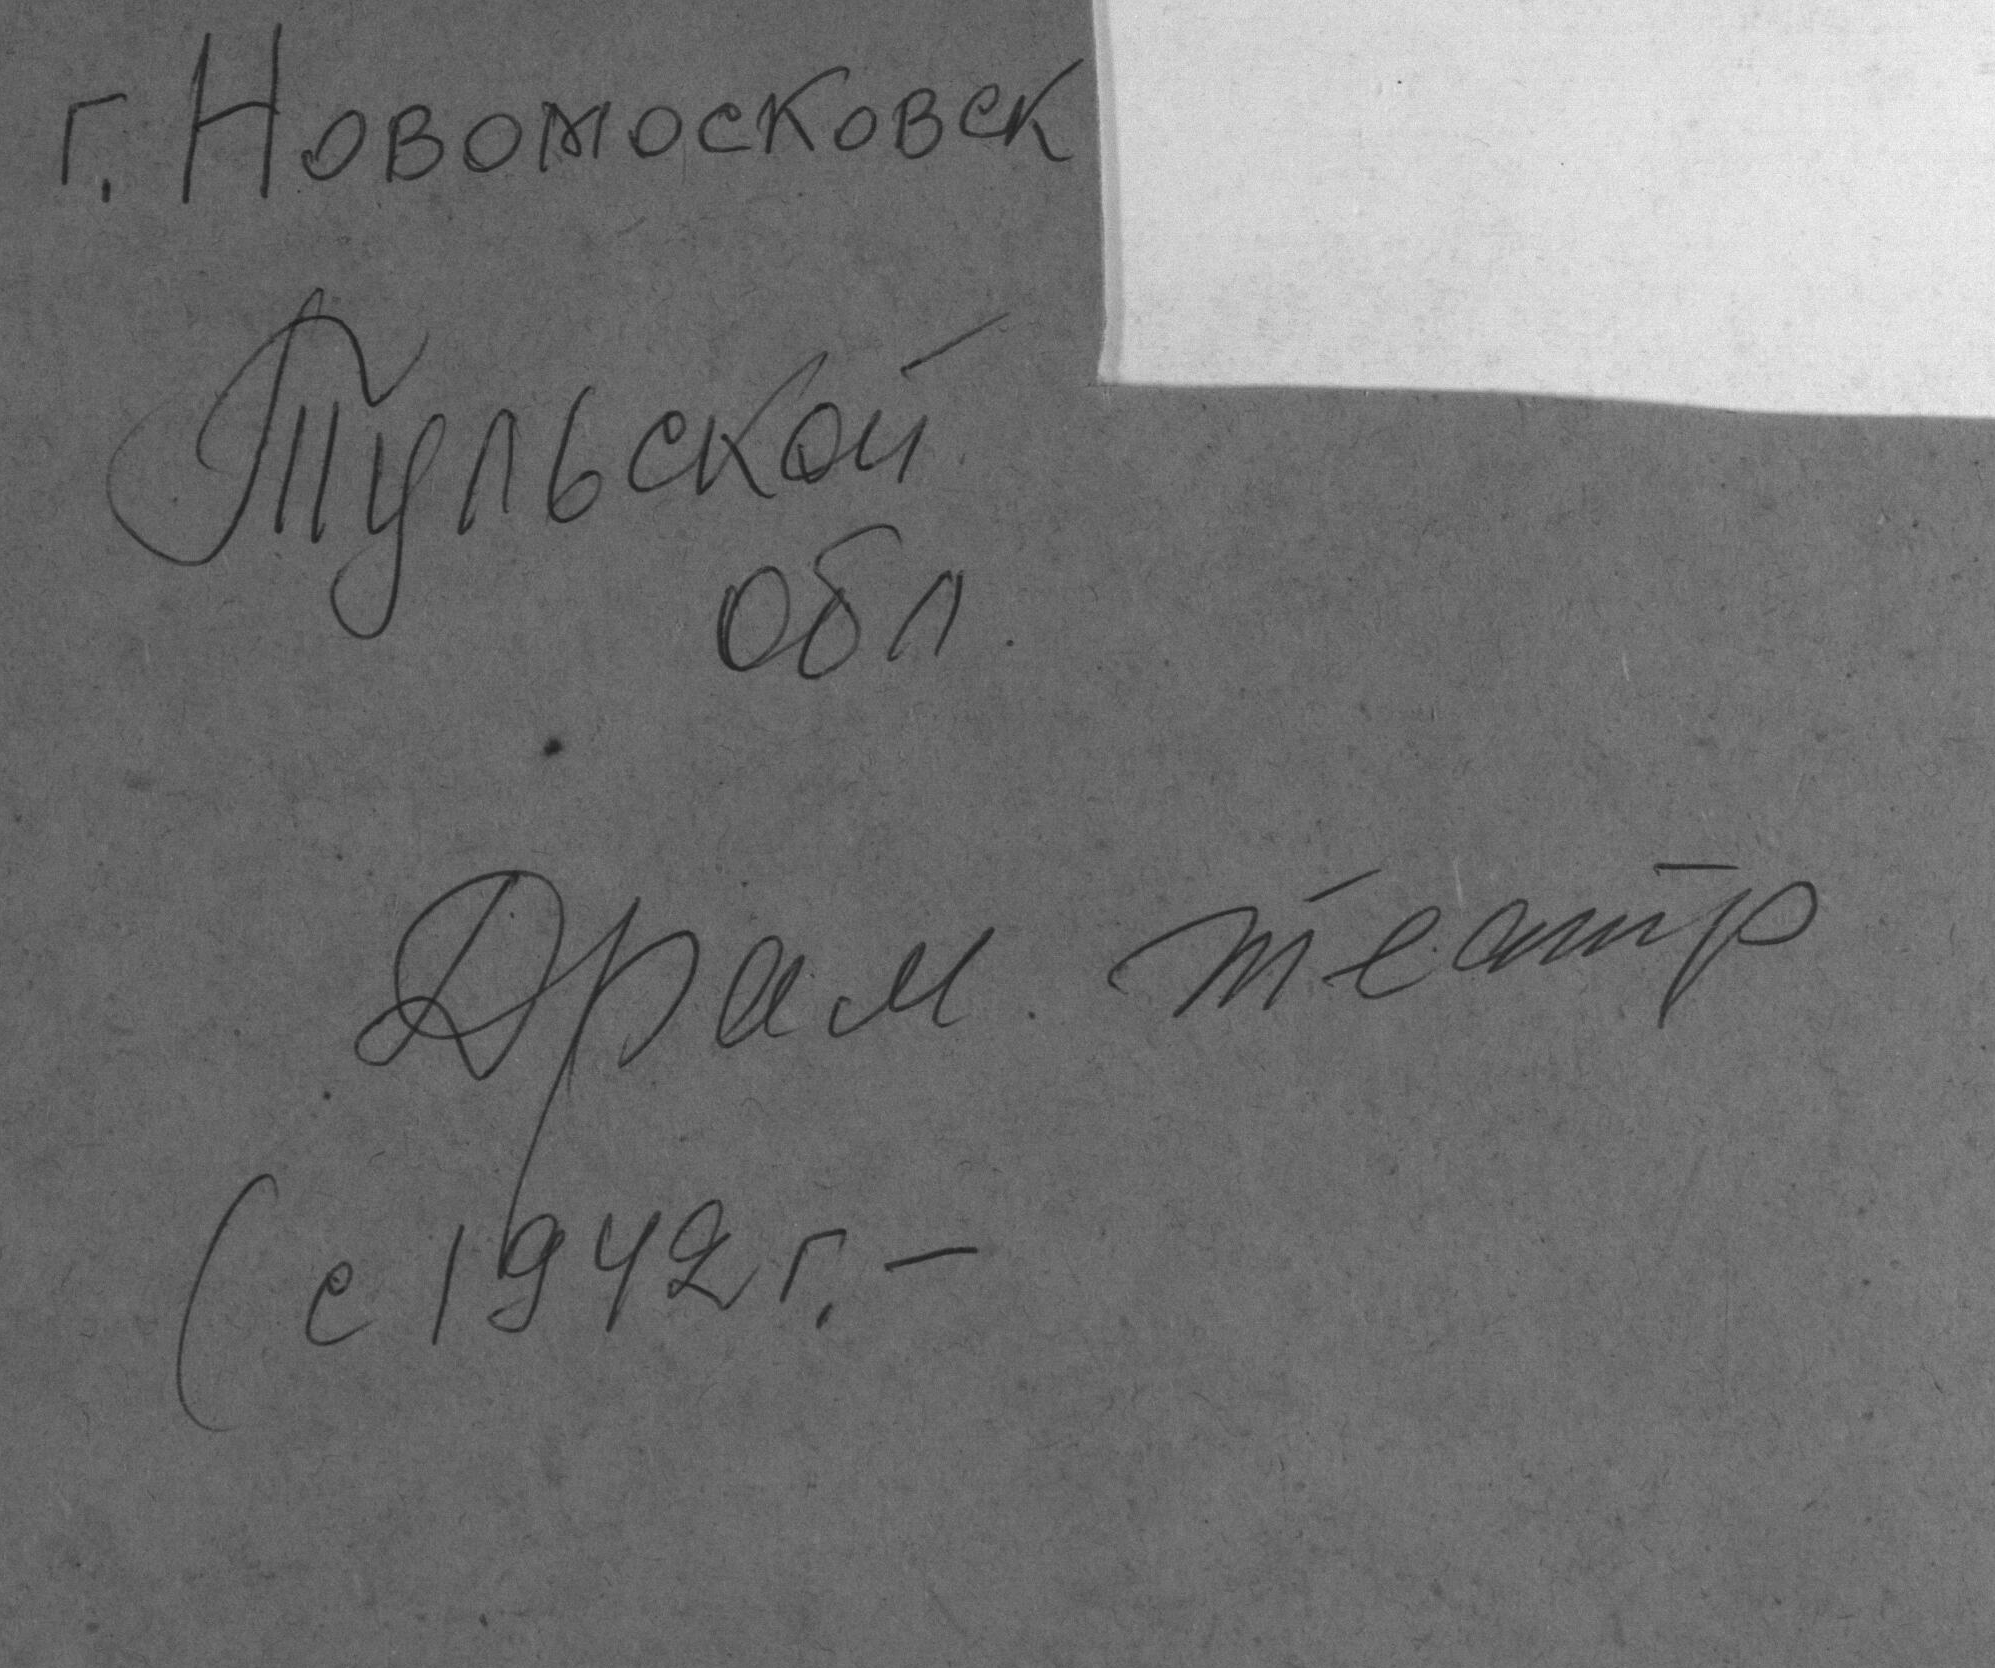 г. Новомосковск
Тульской
обл.
Драм. театр
(с 1942 г. –